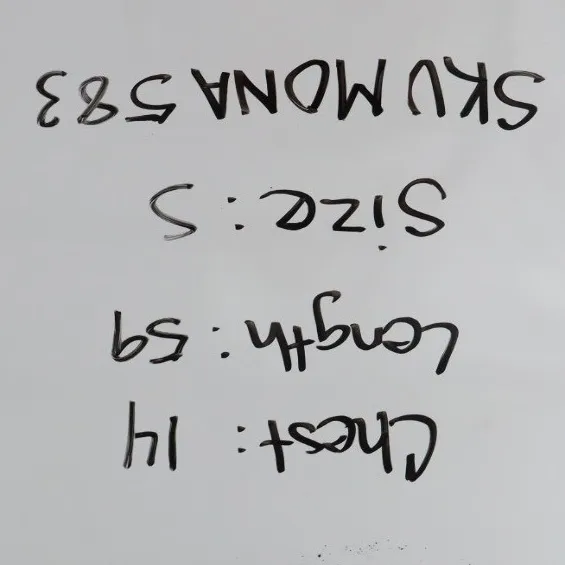 Chest: 14
Length: 59
Size: S
SKU MONA 583